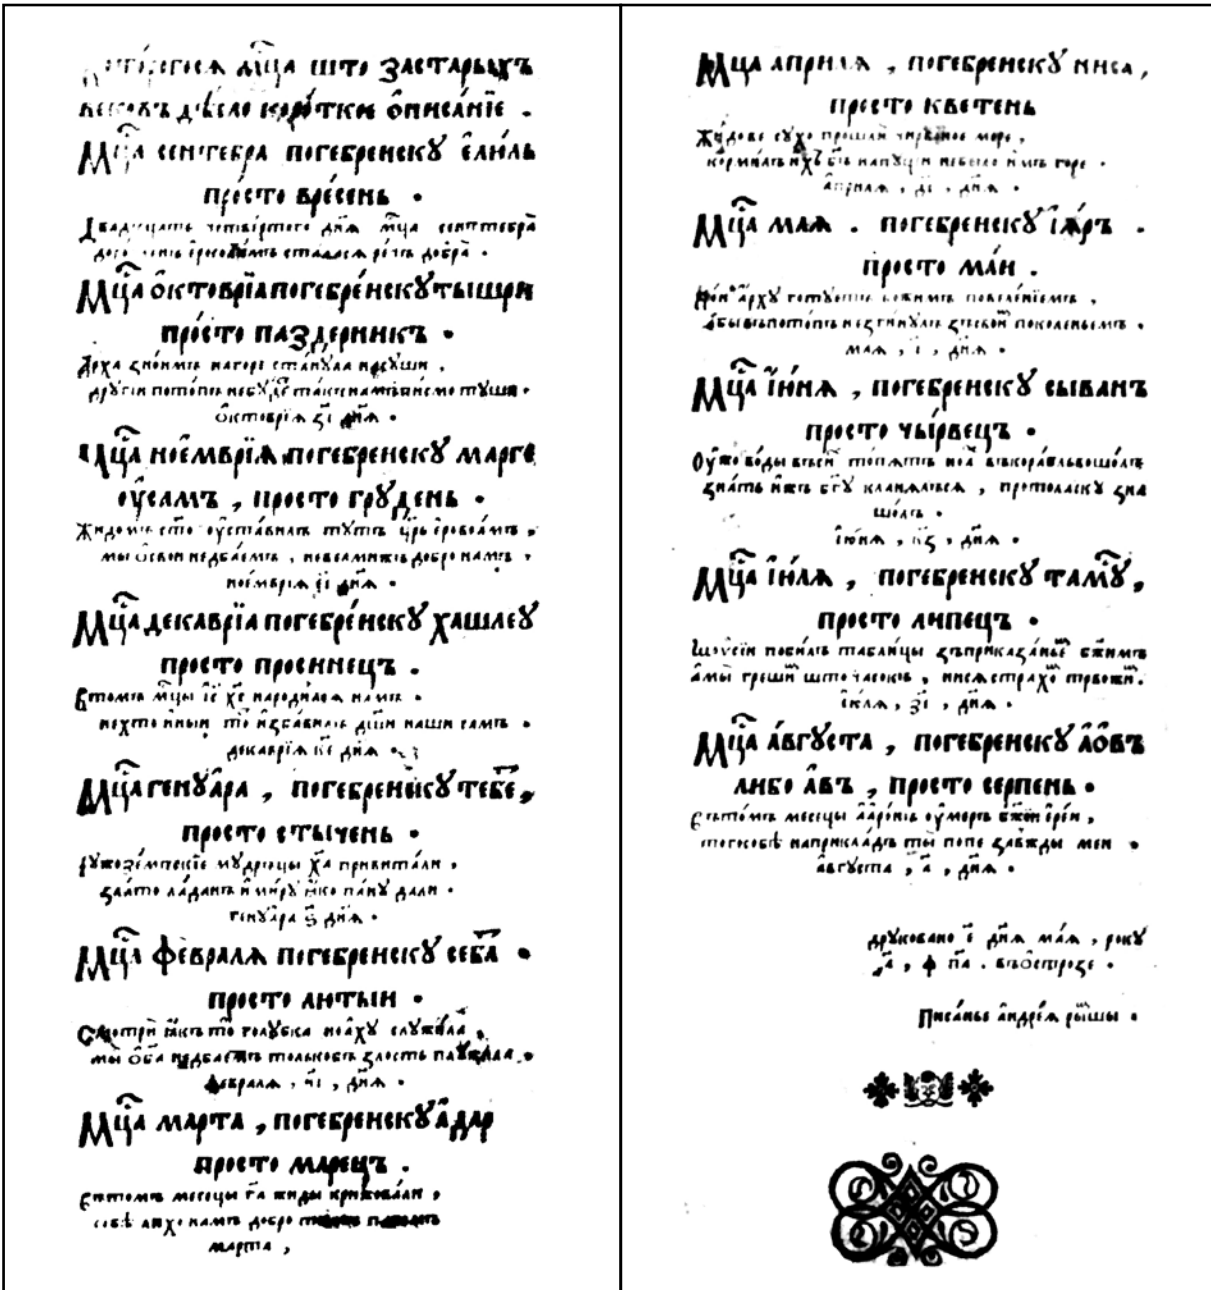 мц҃а што застарыхъ
вековъ дѣело коро́ткое ѡ҆писа́нїе .
Мц҃а сентебра погебренскꙋ є҆лю́ль
про́сто вре́сень .
Двадцать четве́ртого дн҃я мц҃а сенттебра
сталася ре́чъ добра .
Мц҃а ѻ҆ктоврїа погебре́нскꙋ тышри
про́сто паздерникъ .
а́рха зно́имъ нагоре ста́нꙋла
дрꙋгїи пото́пъ
ѻ҆ктоврїя з҃і дн҃я .
Мц҃а ное́мврїя погебренскꙋ марге
ѹ҆самъ , просто грꙋдень .
Жидомъ сто ѹ҆ста́вилъ тꙋтъ цр҃ь єровоа́мъ ,
мы ѻ҆ свои недба́емъ , добро намъ ,
ное́мврїя е҃і дн҃я .
Мц҃а декаврїа погебре́нскꙋ хашлеꙋ
просто просинецъ .
Втомъ мц҃ы і҃с х҃с народи́лся намъ .
нехто и́ныи то и҆зба́вилъ дш҃и наши самъ .
декаврїя к҃е дн҃я .
Мц҃а генꙋа́ра , погебренскꙋ тебе́ ,
просто стычень .
Чꙋжозе́мские мꙋдрецы х҃а привитали ,
злато ла́данъ и ми́рꙋ ꙗко па́нꙋ дали .
генꙋа́ра ѕ҃ дн҃я .
Мц҃а феѵраля погебренскꙋ сева́ .
просто лютыи .
Смотри ꙗкъ то голꙋбка ноа́хꙋ слꙋжила ,
мы ѻ҆ба недбаемъ толькобъ злость
февраля , и҃і , дн҃я .
Мц҃а марта , погебренскꙋ а҆дар
просто марецъ .
Втомъ месецы г҃а жиды крижова́ли ,
собѣ лихо намъ добро
марта ,
Мц҃а априля , погебренскꙋ ниса ,
просто кветень
Жи́дове сꙋхо прошли чирво́ное море ,
корми́лъ и́хъ бг҃ъ напꙋщи небыло и́мъ горе .
априля , д҃і , дн҃я .
Мц҃а мая . погебренскꙋ і҆я́ръ .
просто ма́и .
Но́и а́рхꙋ готꙋетъ божимъ повеле́нїемъ ,
абы въпотопъ незгинꙋлъ зъсвои поколеньемъ .
мая , і҃ , дн҃я .
Мц҃а і҆ю́ня , погебренскꙋ сыванъ
просто чы́рвецъ .
Оу҆жо во́ды въси то́пятъ ноа́ въкора́бль вошолъ
зна́ть ижъ бг҃ꙋ кланялься , протоласкꙋ зна
шолъ .
і҆ю́ня , к҃з , дн҃я .
Мц҃а і҆ю́ля , погебренскꙋ тамꙋ ,
просто липецъ .
Мойсїи поби́лъ табли́цы зъприказа́нье бж҃имъ
а́мы греши што часокъ , нися страхо тривожи .
і҆ю́ля , з҃і , дн҃я .
Мц҃а а́вгꙋста , погебренскꙋ а҆ѻ҆въ
либо а҆въ , просто серпень .
Въто́мъ месецы аа́ронъ ѹ҆меръ бж҃ои є҆ре́и ,
тогособѣ наприкла́дъ ты́ попе за́вжды меи .
а҆вгꙋста , а҃ , дн҃я .
дрꙋковано е҃ дн҃я ма́я , рокꙋ
҂а , ф п҃а . въѻ҆строзе .
Писанье а҆ндре́я ры́мшы .